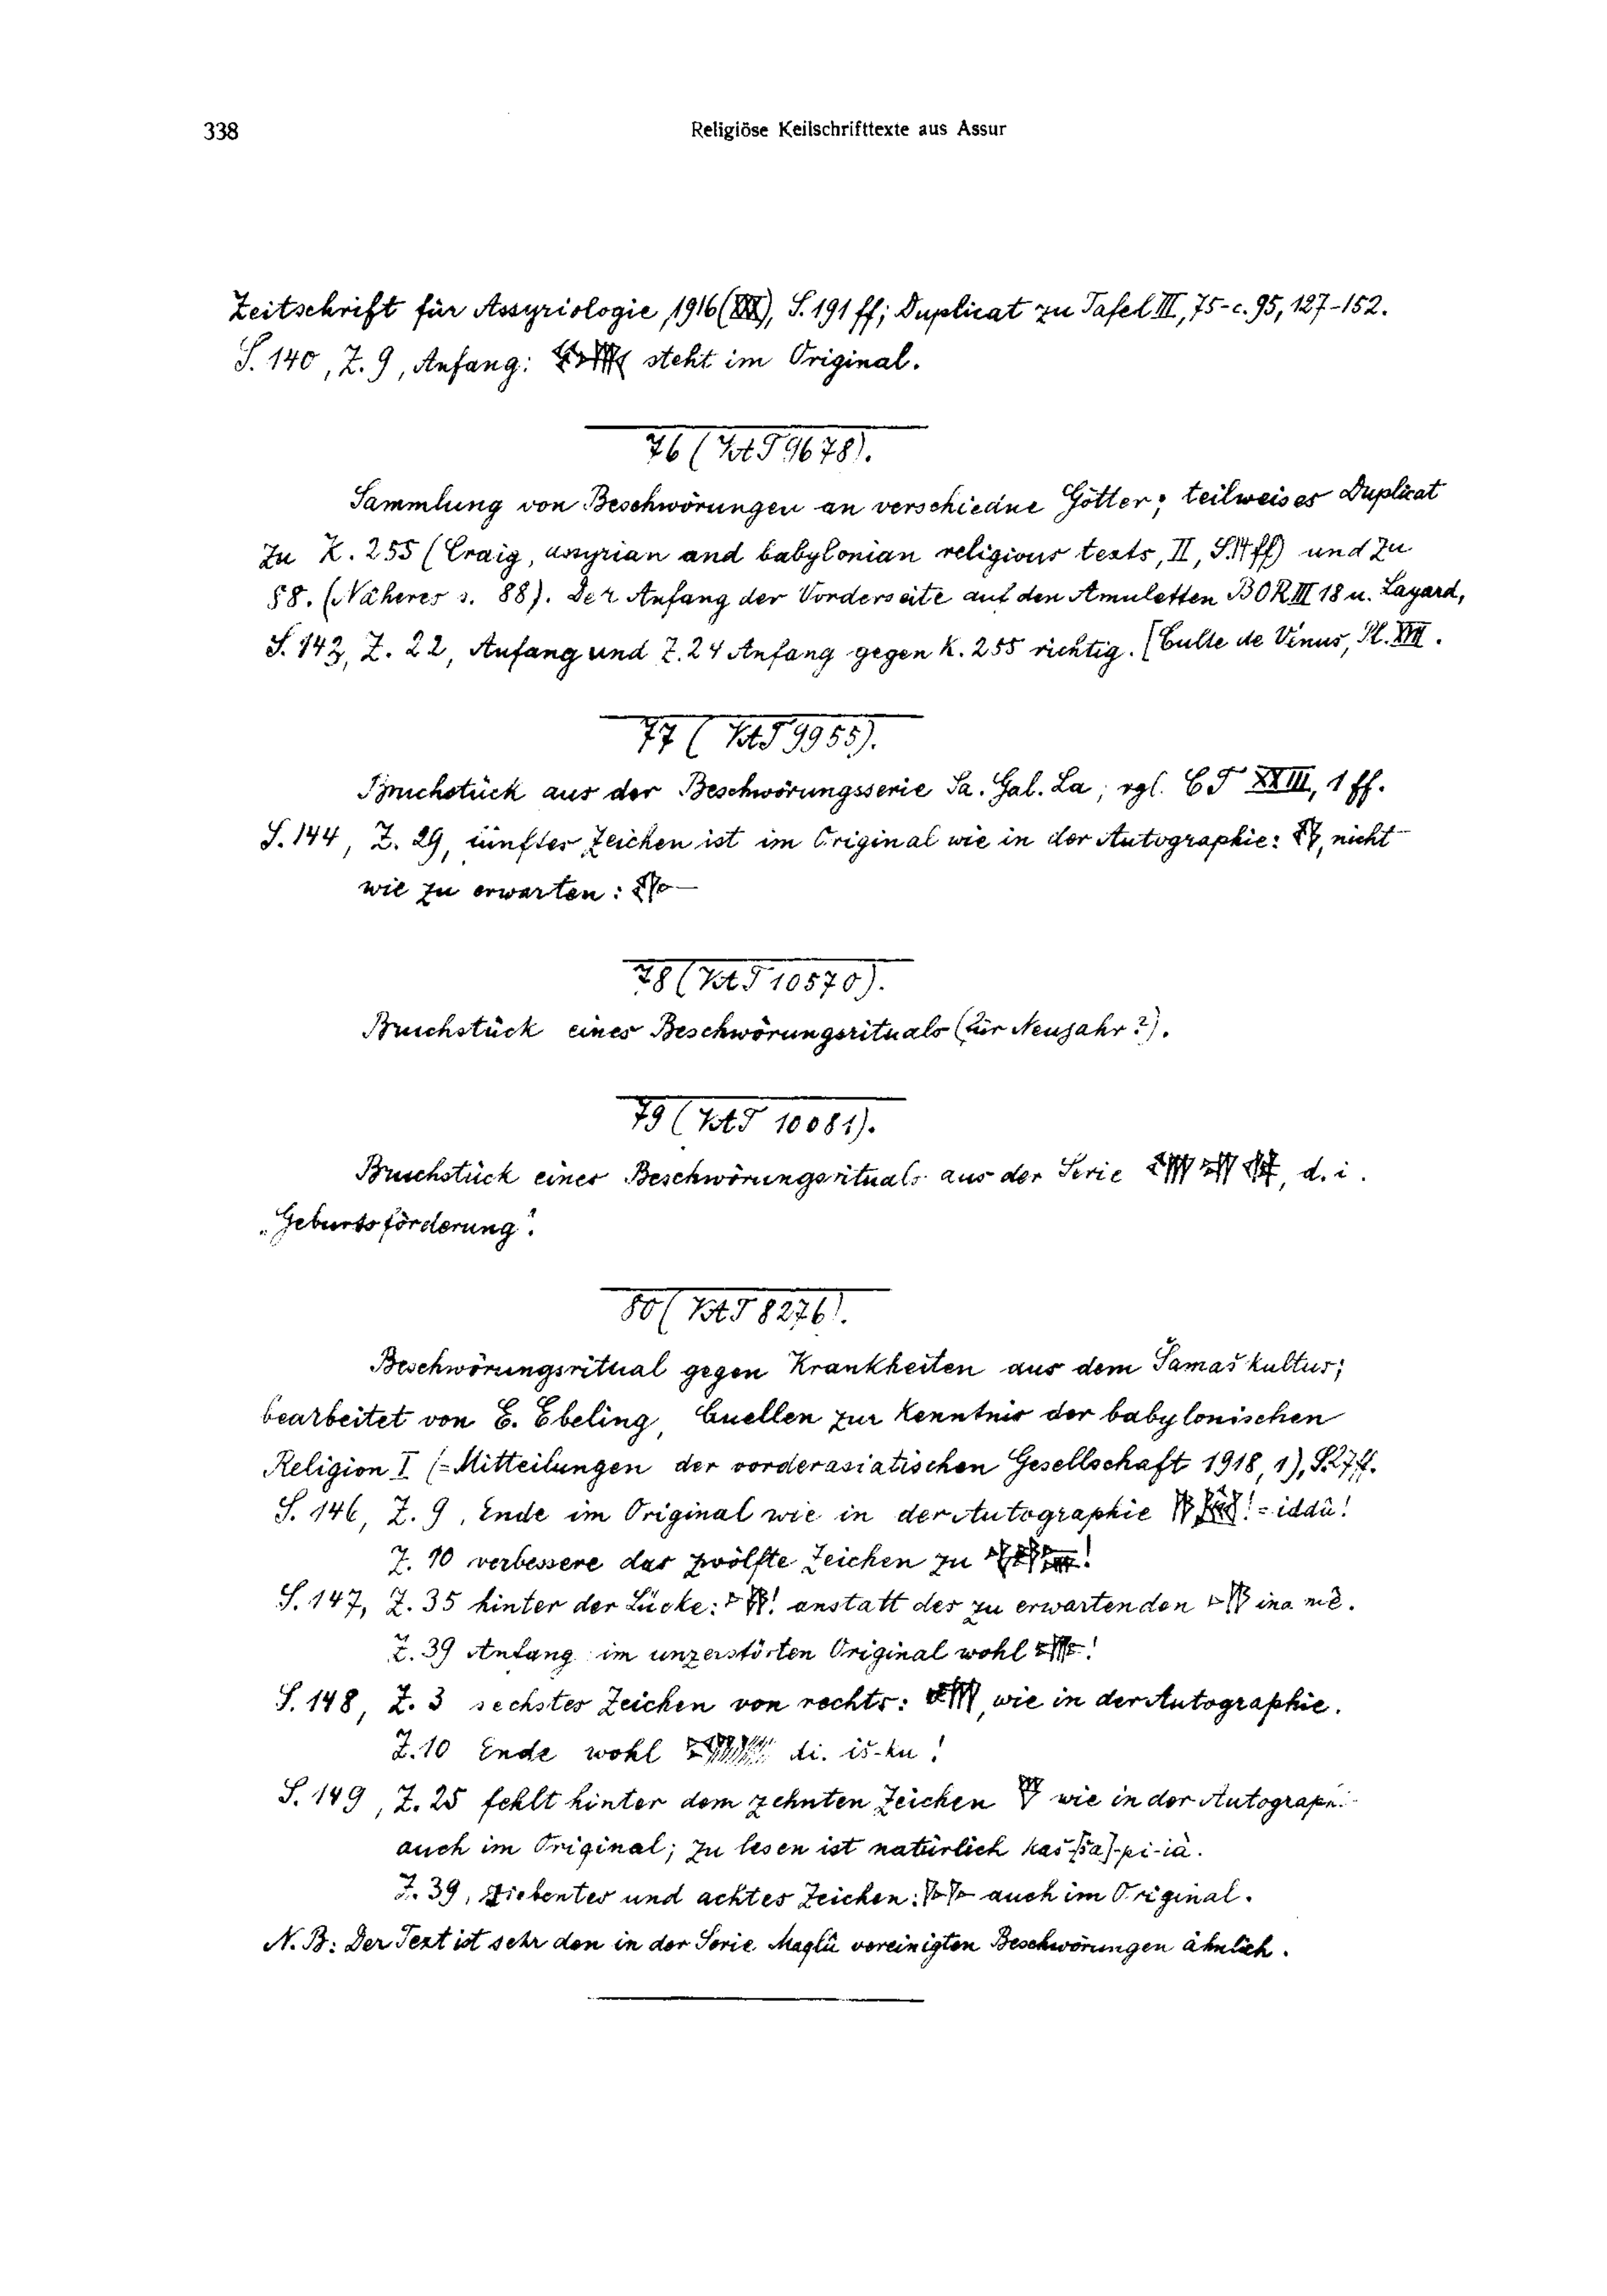 338 Religiöse Keilschrifttexte aus Assur
Zeitschrift für Assyriologie, 1916 (XXX), S. 191 ff; Duplicat zu Tafel III, 75-c. 95, 127-152.
S. 140, Z. 9, Anfang: steht im Original.
76 (VAT 9678).
Sammlung von Beschwörungen an verschiedne Götter; teilweises Duplicat
zu K. 255 (Craig, assyrian and babylonian religious texts, II, S. 14 ff) und zu
88. (Näheres s. 88). Der Anfang der Vorderseite auf den Amuletten BOR III 18 u. Layard,
S. 143, Z. 22, Anfang und Z. 24 Anfang gegen K. 255 richtig. [Culte de Vénus, Pl. XVII.
77 (VAT 9955).
Bruchstück aus der Beschwörungsserie Sa. Gal. La; vgl. CT XXIII, 1 ff.
S. 144, Z. 29, fünftes Zeichen ist im Original wie in der Autographie: nicht
wie zu erwarten:
78 (VAT 10570).
Bruchstück eines Beschwörungsrituals (für Neujahr?).
79 (VAT 10081).
Bruchstück eines Beschwörungsrituals aus der Serie d. i.
„Geburtsförderung".
80 (VAT 8276).
Beschwörungsritual gegen Krankheiten aus dem Šamaškultus;
bearbeitet von E. Ebeling, Quellen zur Kenntnis der babylonischen
Religion I (= Mitteilungen der vorderasiatischen Gesellschaft 1918, 1), S. 27 ff.
S. 146, Z. 9, Ende im Original wie in der Autographie ! = iddû!
Z. 10 verbessere das zwölfte Zeichen zu !
S. 147, Z. 35 hinter der Lücke: ! anstatt des zu erwartenden ina mê.
Z. 39 Anfang im unzerstörten Original wohl !
S. 148, Z. 3 sechstes Zeichen von rechts: , wie in der Autographie.
Z. 10 Ende wohl di. iš-ku!
S. 149, Z. 25 fehlt hinter dem zehnten Zeichen wie in der Autograph.
auch im Original; zu lesen ist natürlich kaš-[ša]-pi-ia.
Z. 39, siebentes und achtes Zeichen: auch im Original.
N. B: Der Text ist sehr den in der Serie Maqlû vereinigten Beschwörungen ähnlich.